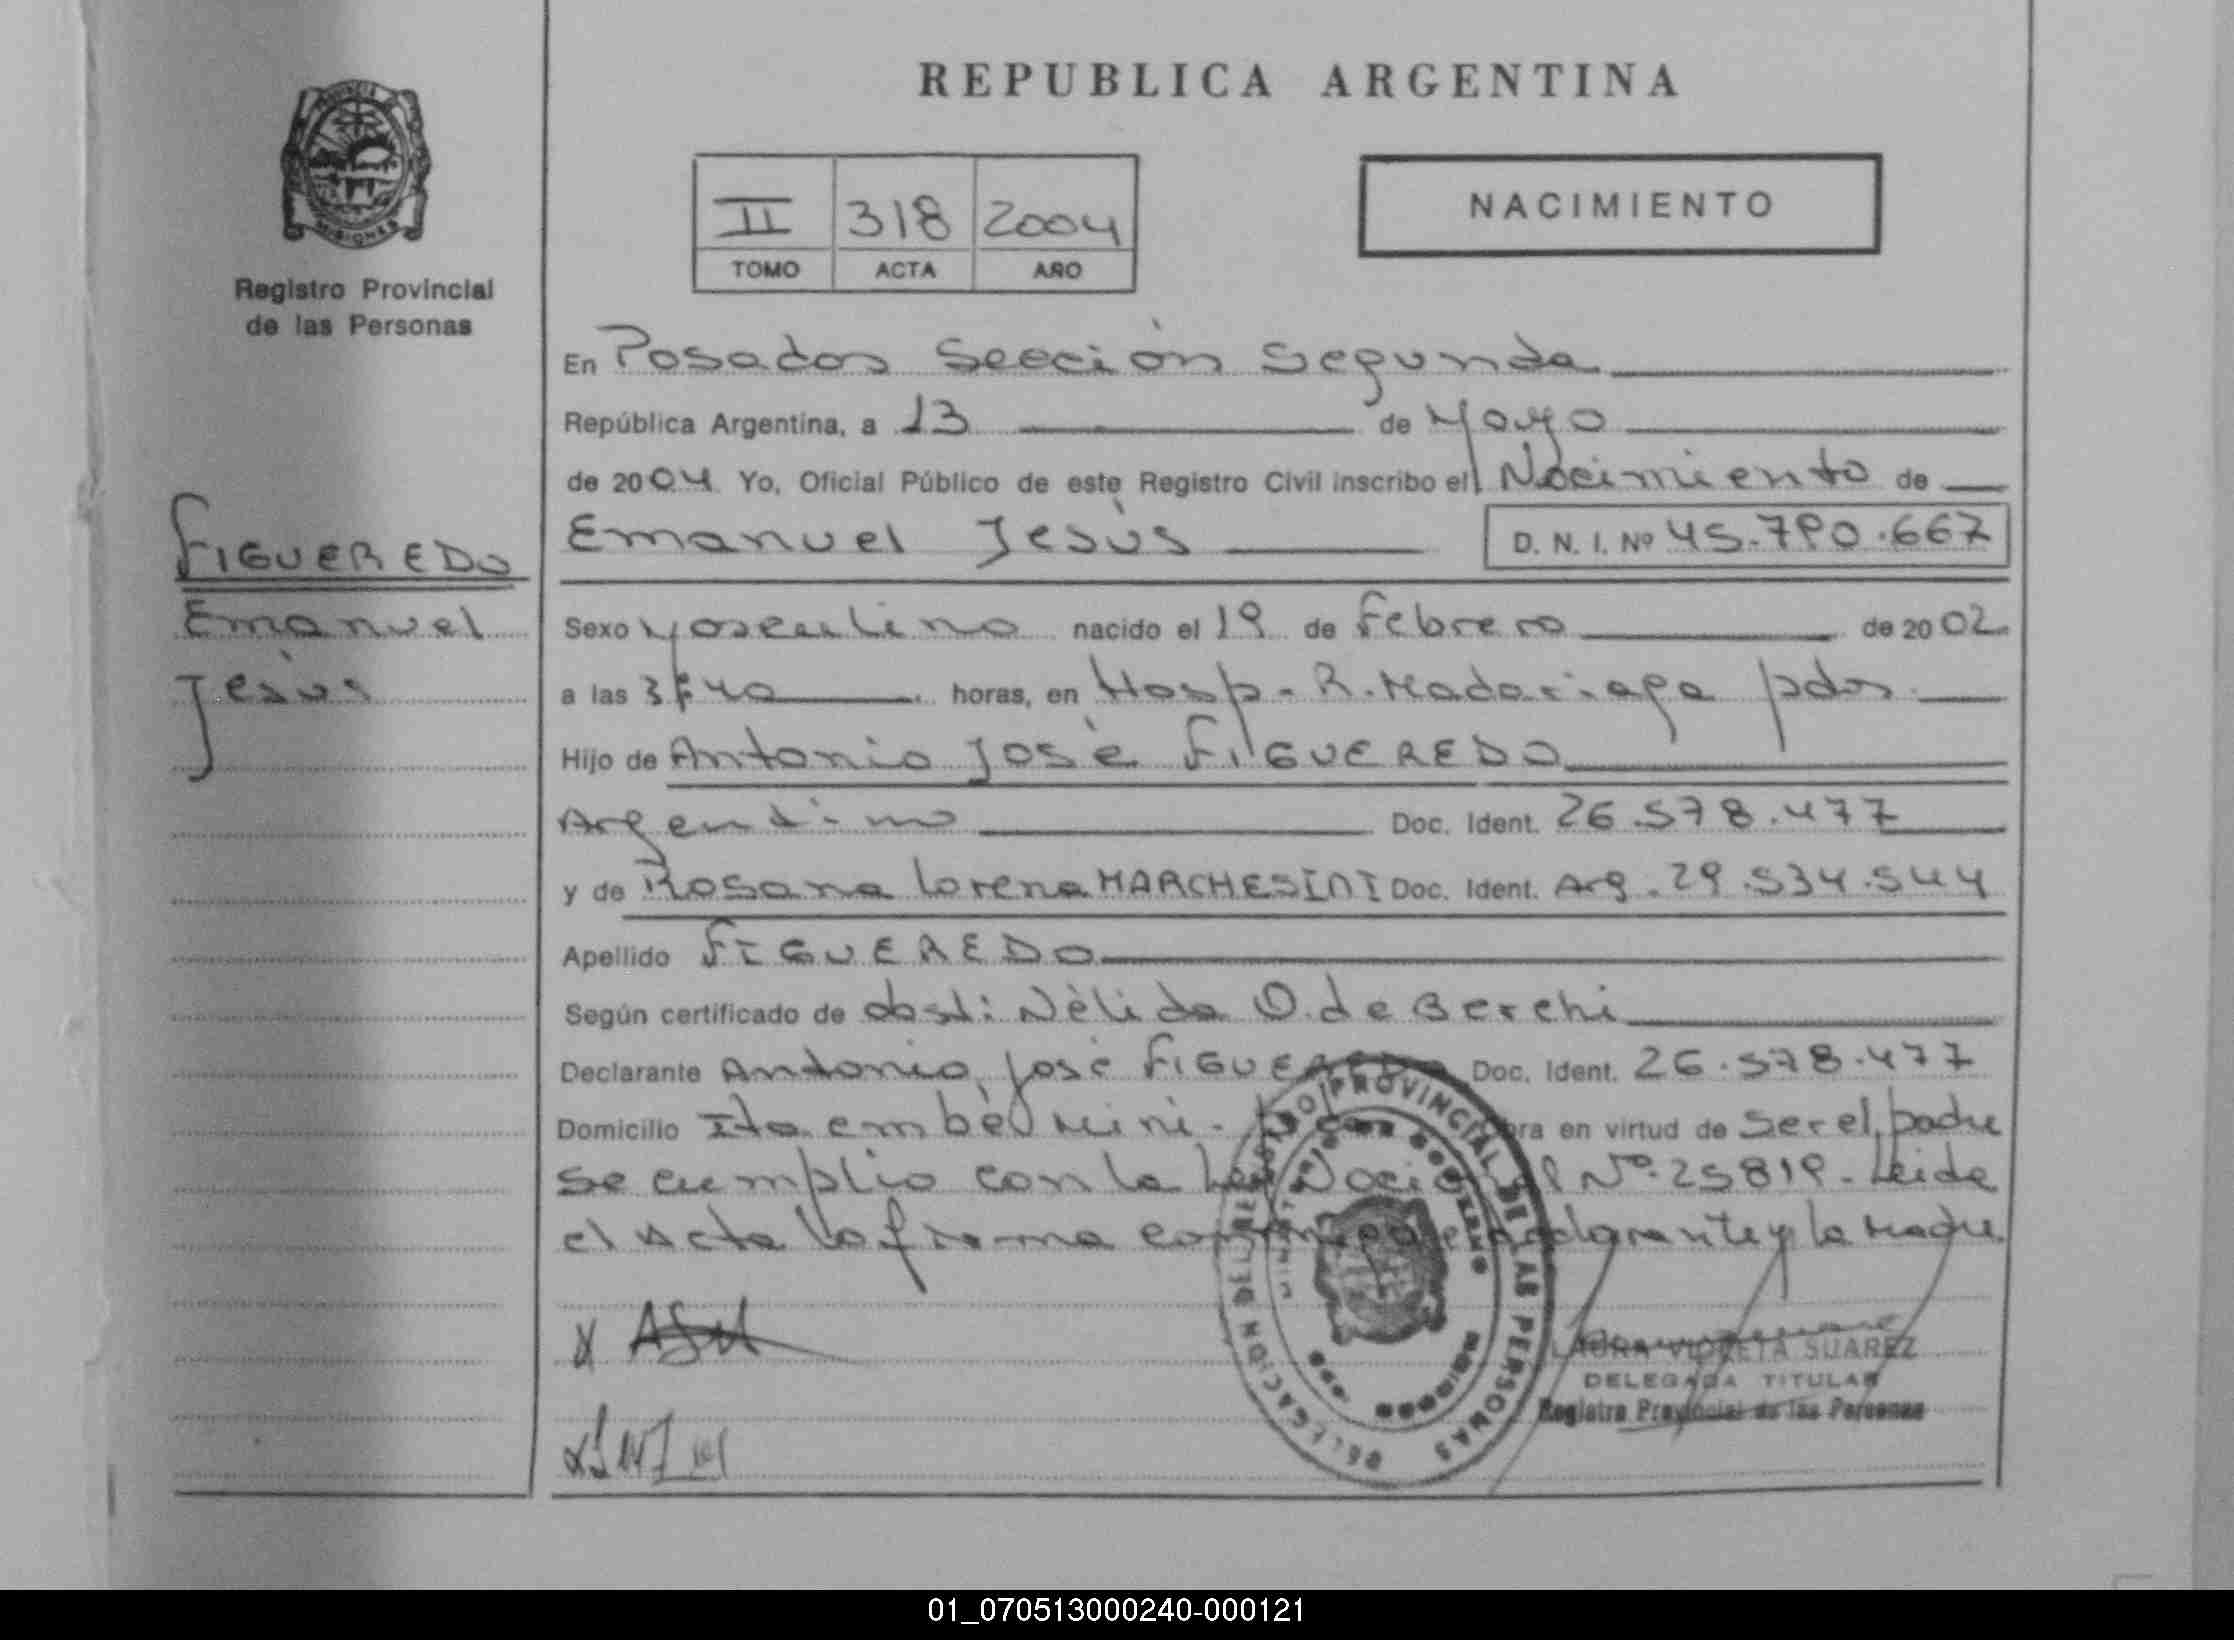 REPUBLICA ARGENTINA
PROVINCIA
MISIONES
Registro Provincial
de las Personas
II 318 2004
TOMO ACTA AÑO
NACIMIENTO
En Posadas Sección Segunda
República Argentina, a 13 de Mayo
de 2004 Yo, Oficial Público de este Registro Civil inscribo el Nacimiento de
FIGUEREDO
Emanuel
Jesús
Emanuel Jesús D. N. I. Nº 45.790.667
Sexo Masculino nacido el 19 de Febrero de 2002
a las 3 40 horas, en Hosp. R. Madariaga pdas.
Hijo de Antonio José FIGUEREDO
Argentino Doc. Ident. 26.578.477
y de Rosana Lorena MARCHESINI Doc. Ident. Arg. 29.534.544
Apellido FIGUEREDO
Según certificado de obst: Nélida O. de Berchi
Declarante Antonio José FIGUEREDO Doc. Ident. 26.578.477
Domicilio Ita embé mini - Obra en virtud de Ser el padre
se cumplio con la Ley Nacional Nº 25819 - Leida
el Acta la firma conmigo el declarante y la Madre.
DELEGACION DEL REGISTRO PROVINCIAL DE LAS PERSONAS
LAURA VIOLETA SUAREZ
DELEGADA TITULAR
Registro Provincial de las Personas
01_070513000240-000121